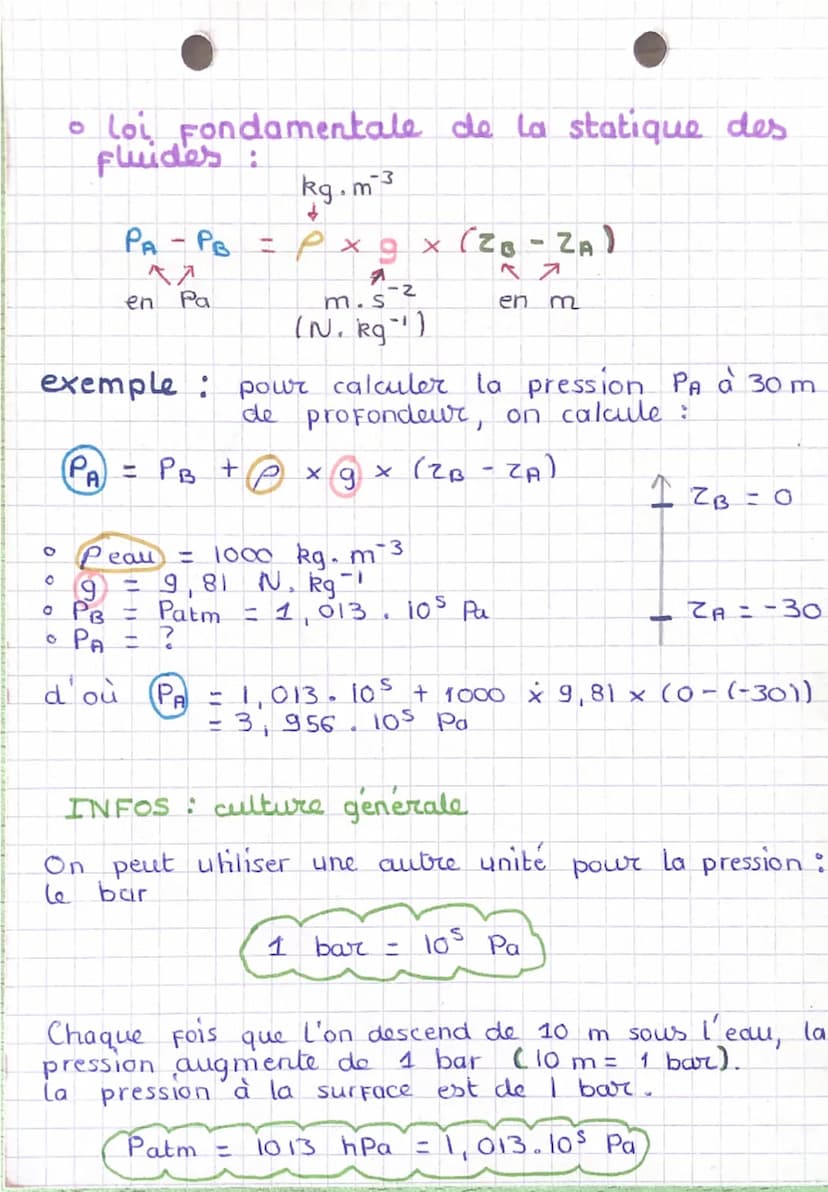 • loi fondamentale de la statique des
fluides :
kg.m⁻³
PA - PB = ρ × g × (zB - zA)
en Pa m.s⁻² en m
(N.kg⁻¹)
exemple : pour calculer la pression PA à 30 m
de profondeur, on calcule :
PA = PB + ρ × g × (zB - zA)
zB = 0
• ρeau = 1000 kg.m⁻³
• g = 9,81 N.kg⁻¹
• PB = Patm = 1,013 . 10⁵ Pa
zA = -30
• PA = ?
d'où PA = 1,013 . 10⁵ + 1000 × 9,81 × (0-(-30))
= 3,956 . 10⁵ Pa
INFOS : culture générale
On peut utiliser une autre unité pour la pression :
le bar
1 bar = 10⁵ Pa
Chaque fois que l'on descend de 10 m sous l'eau, la
pression augmente de 1 bar (10 m = 1 bar).
la pression à la surface est de 1 bar.
Patm = 1013 hPa = 1,013.10⁵ Pa